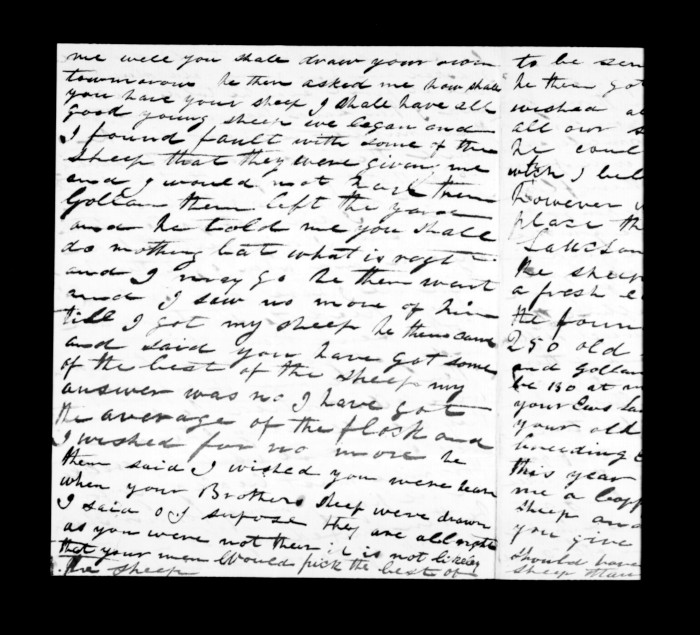 me well you shall draw your own
towmorow he then asked me how shall
you have your sheep I shall have all
good young sheep we began and
I found fault with some of the
sheep that they were given me
and I would not have them
Gollan then left the yard
and he told me you shall
do nothing but what is rogt
and I may go he then want
and I saw no more of him
till I got my sheep he then came
and said you have got some
of the best of the sheep my
answer was no I have got
the average of the flock and
I wished for no more he
then said I wished you were hear
when your Brothers sheep were drawn
I said o I supose they are all right
as you were not then it is not likeley
that your men Would pick the best of
the sheep
to be sen
he then got
wished al
all our s
he coul
wich I bel
however
place th
the sheep
a fresh
the foun
250 old
and Gollan
be 150 at
your Ews
your old
breeding
this year
me a
sheep and
you give
should have
sheep than